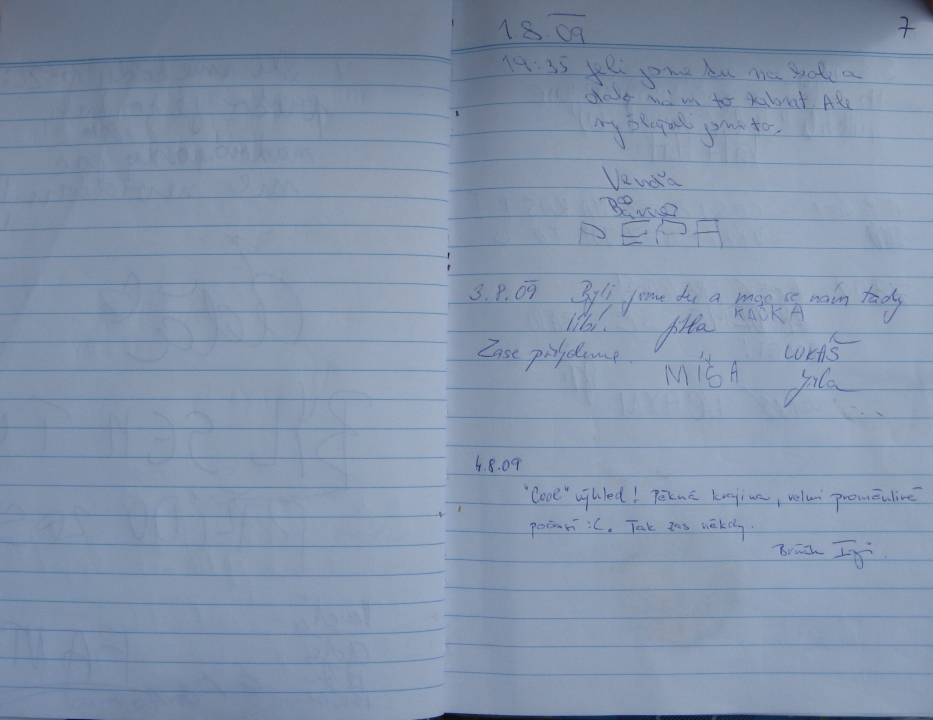 1.8.09
7
14:35 jeli jsme tu na kole a
dalo nám to zabrat. Ale
vyšlapali jsme to.
Venďa
Bára
PEPA
3.8.09 Byli jsme tu a moc se nám tady
líbí. Jitla KAČKA
Zase přijdeme. LUKÁŠ
MÍŠA Jirka
4.8.09
"Cool" výhled! Pěkná krajina, velmi proměnlivé
počasí :C. Tak zas někdy.